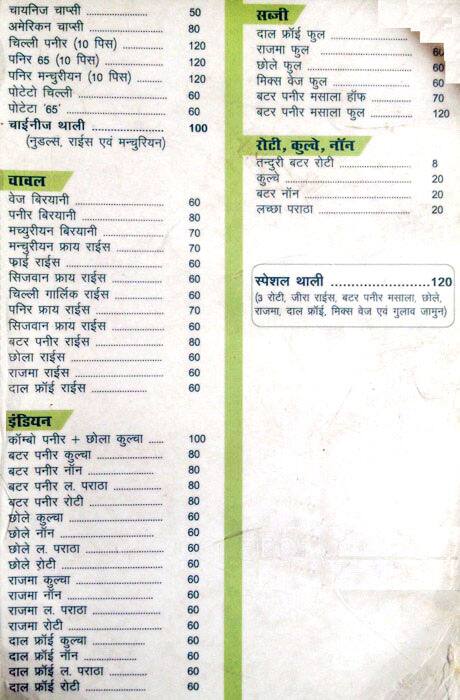 चायनिज चाप्सी ........ 50
अमेरिकन चाप्सी ........ 80
चिल्ली पनीर (10 पिस) ........ 120
पनिर 65 (10 पिस) ........ 120
पनिर मन्चुरीयन (10 पिस) ........ 120
पोटेटो चिल्ली ........ 60
पोटेटा '65' ........ 60
चाईनीज थाली ........ 100
(नुडल्स, राईस एवं मन्चुरियन)
चावल
वेज बिरयानी ........ 60
पनीर बिरयानी ........ 80
मच्युरीयन बिरयानी ........ 70
मन्चुरीयन फ्राय राईस ........ 70
फ्राई राईस ........ 60
सिजवान फ्राय राईस ........ 60
चिल्ली गार्लिक राईस ........ 60
पनिर फ्राय राईस ........ 70
सिजवान फ्राय राईस ........ 60
बटर पनीर राईस ........ 80
छोला राईस ........ 60
राजमा राईस ........ 60
दाल फ्रॉई राईस ........ 60
इंडियन
कॉम्बो पनीर + छोला कुल्चा ..... 100
बटर पनीर कुल्चा ........ 80
बटर पनीर नॉन ........ 80
बटर पनीर ल. पराठा ........ 80
बटर पनीर रोटी ........ 80
छोले कुल्चा ........ 60
छोले नॉन ........ 60
छोले ल. पराठा ........ 60
छोले रोटी ........ 60
राजमा कुल्चा ........ 60
राजमा नॉन ........ 60
राजमा ल. पराठा ........ 60
राजमा रोटी ........ 60
दाल फ्रॉई कुल्चा ........ 60
दाल फ्रॉई नॉन ........ 60
दाल फ्रॉई ल. पराठा ........ 60
दाल फ्रॉई रोटी ........ 60
सब्जी
दाल फ्रॉई फुल ........
राजमा फुल ........ 60
छोले फुल ........ 60
मिक्स वेज फुल ........ 60
बटर पनीर मसाला हॉफ ........ 70
बटर पनीर मसाला फुल ........ 120
रोटी, कुल्चे, नॉन
तन्दुरी बटर रोटी ........ 8
कुल्चे ........ 20
बटर नॉन ........ 20
लच्छा पराठा ........ 20
स्पेशल थाली ........120
(3 रोटी, जीरा राईस, बटर पनीर मसाला, छोले,
राजमा, दाल फ्रॉई, मिक्स वेज एवं गुलाव जामुन)